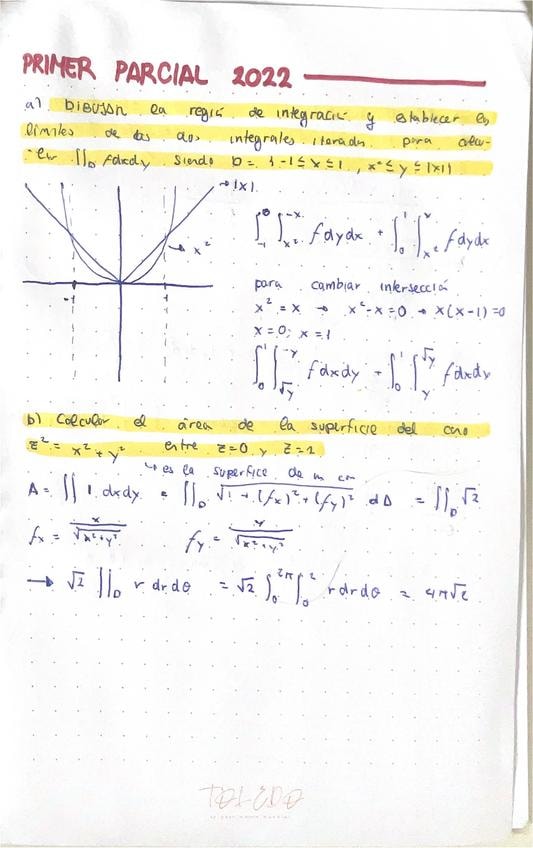 PRIMER PARCIAL 2022
a) DIBUJAR la región de integración y establecer los
límites de las dos integrales iteradas para calcu-
lar ∬_D f dxdy siendo D = { -1 ≤ x ≤ 1 , x² ≤ y ≤ |x| }
|x|
x²
-1 1
∫_{-1}^{0} ∫_{x²}^{-x} f dy dx + ∫_{0}^{1} ∫_{x²}^{x} f dy dx
para cambiar intersección
x² = x → x² - x = 0 → x(x-1) = 0
x = 0; x = 1
∫_{0}^{1} ∫_{√y}^{-y} f dx dy + ∫_{0}^{1} ∫_{y}^{√y} f dx dy
b) Calcular el área de la superficie del cono
z² = x² + y² entre z=0 y z=2
↳ es la superficie de un
A = ∬ 1 dxdy = ∬_D √(1 + (fx)² + (fy)²) dA = ∬_D √2
fx = x/√(x²+y²) fy = y/√(x²+y²)
→ √2 ∬_D r dr dθ = √2 ∫_{0}^{2π} ∫_{0}^{2} r dr dθ = 4π√2
TOLEDO